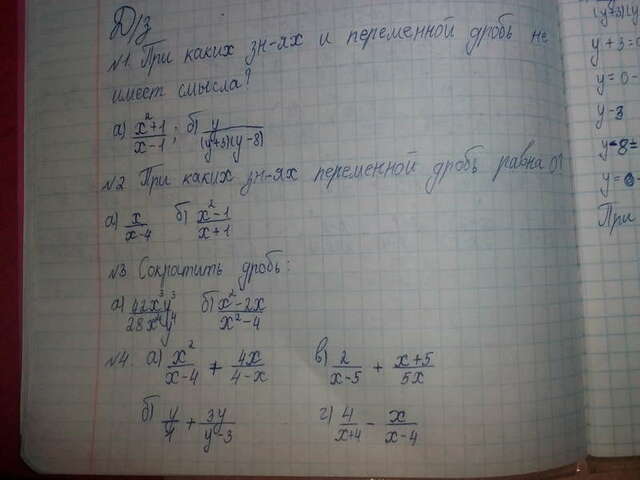 Д/з
№1. При каких зн-ях и переменной дробь не
имеет смысла?
а) (x²+1)/(x-1); б) y/((y+3)(y-8))
№2 При каких зн-ях переменной дробь равна 0?
а) x/(x-4) б) (x²-1)/(x+1)
№3 Сократить дробь:
а) 42x³y³/28x⁴y⁴ б) (x²-2x)/(x²-4)
№4. а) x²/(x-4) + 4x/(4-x) в) 2/(x-5) + (x+5)/5x
б) y/4 + 3y/(y-3) г) 4/(x+4) - x/(x-4)
(y+3)(y
y+3=0
y=0-
y-3
y-8=
При